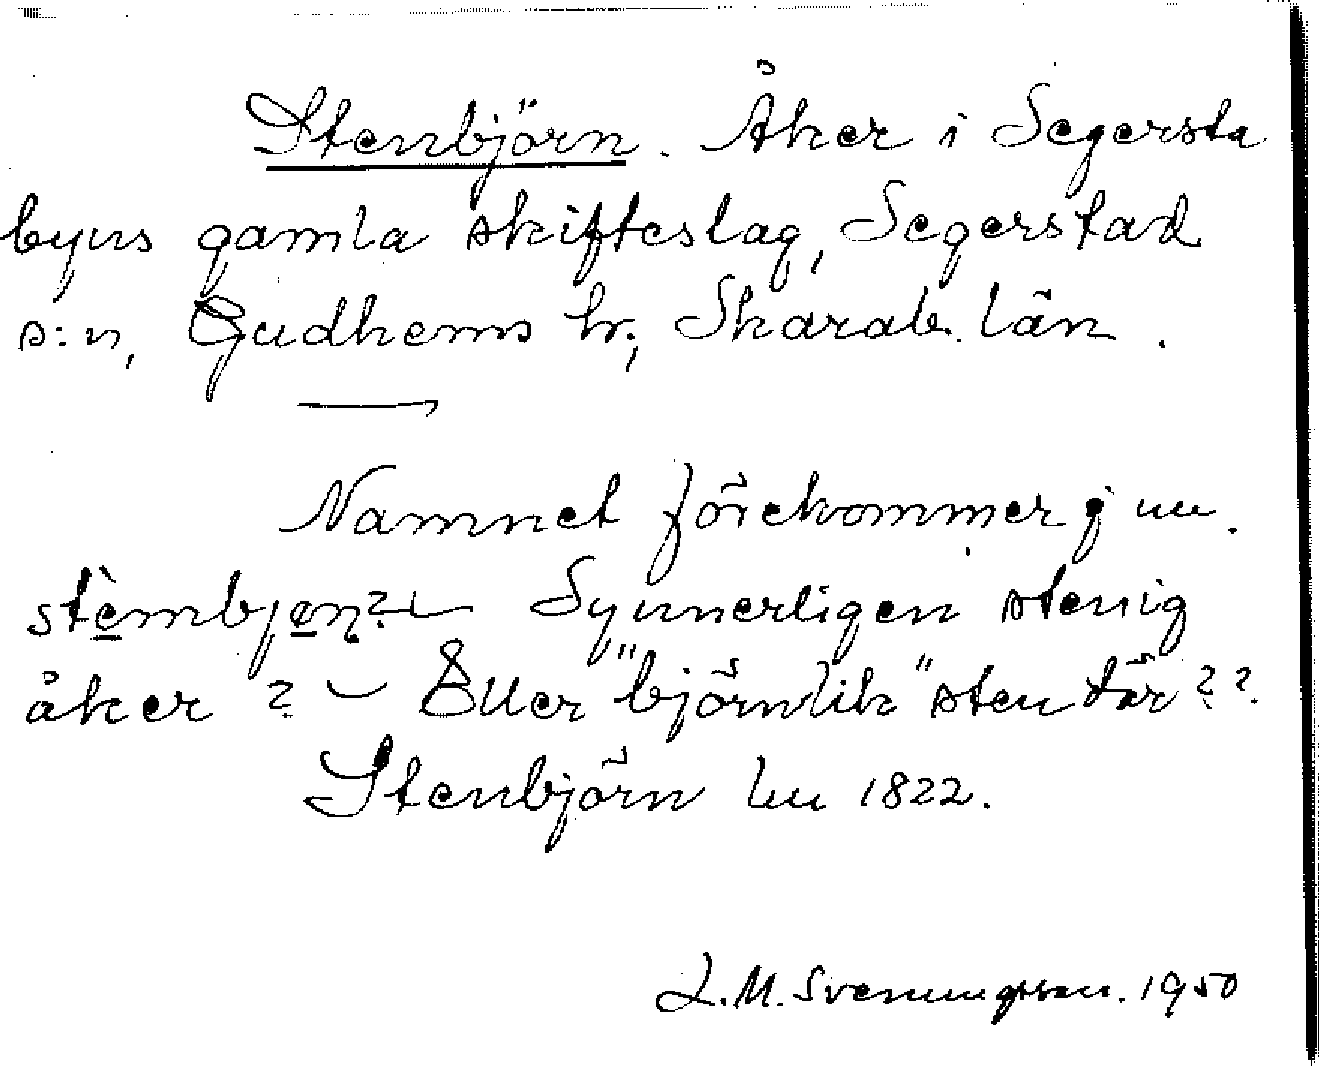 Stenbjörn. Åker i Segersta
byns gamla skifteslag, Segerstad
s:n, Gudhems hr, Skarab. län.
Namnet förekommer j nu.
stèmbjøn? — Synnerligen stenig
åker? — Eller "björnlik" sten där??
Stenbjörn Lu 1822.
L.M. Svenungsson. 1950